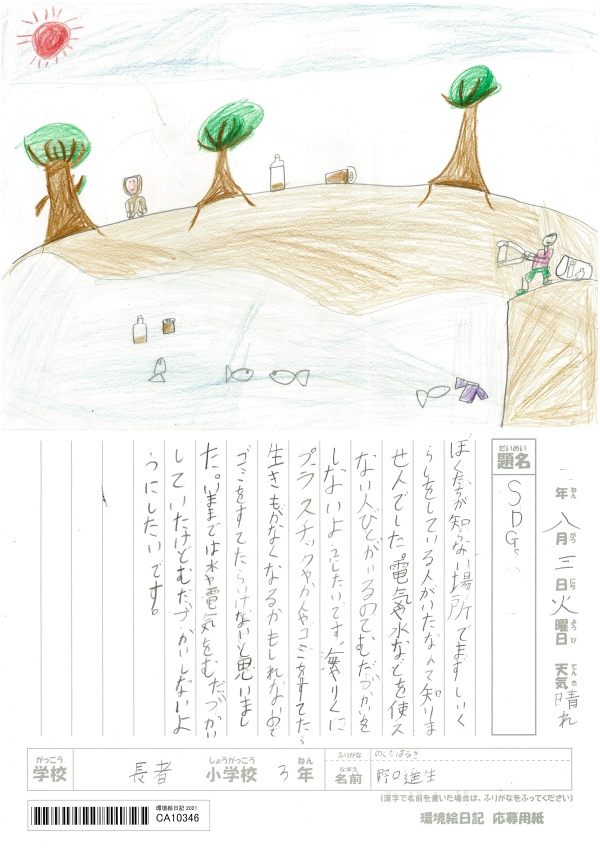 二年 八月 三日 火曜日 天気 晴れ
ねん がつ にち ようび てんき
だいめい
題名
SDGs
ぼくたちが知らない場所でまずしいく
らしをしている人がいたなんて知りま
せんでした。電気や水などを使え
ない人びとがいるのでむだづかいを
しないようにしたいです。海やりくに
プラスチックやかんやゴミをすてたら
生きものがなくなるかもしれないので
ゴミをすてたらいけないと思いまし
た。いままでは水や電気をむだづかい
していたけどむだづかいしないよ
うにしたいです。
がっこう しょうがっこう ねん ふりがな のぐちはるき
学校 長者 小学校 3年 なまえ 名前 野口遥生
(漢字で名前を書いた場合は、ふりがなをふってください)
環境絵日記 2021
CA10346
環境絵日記 応募用紙